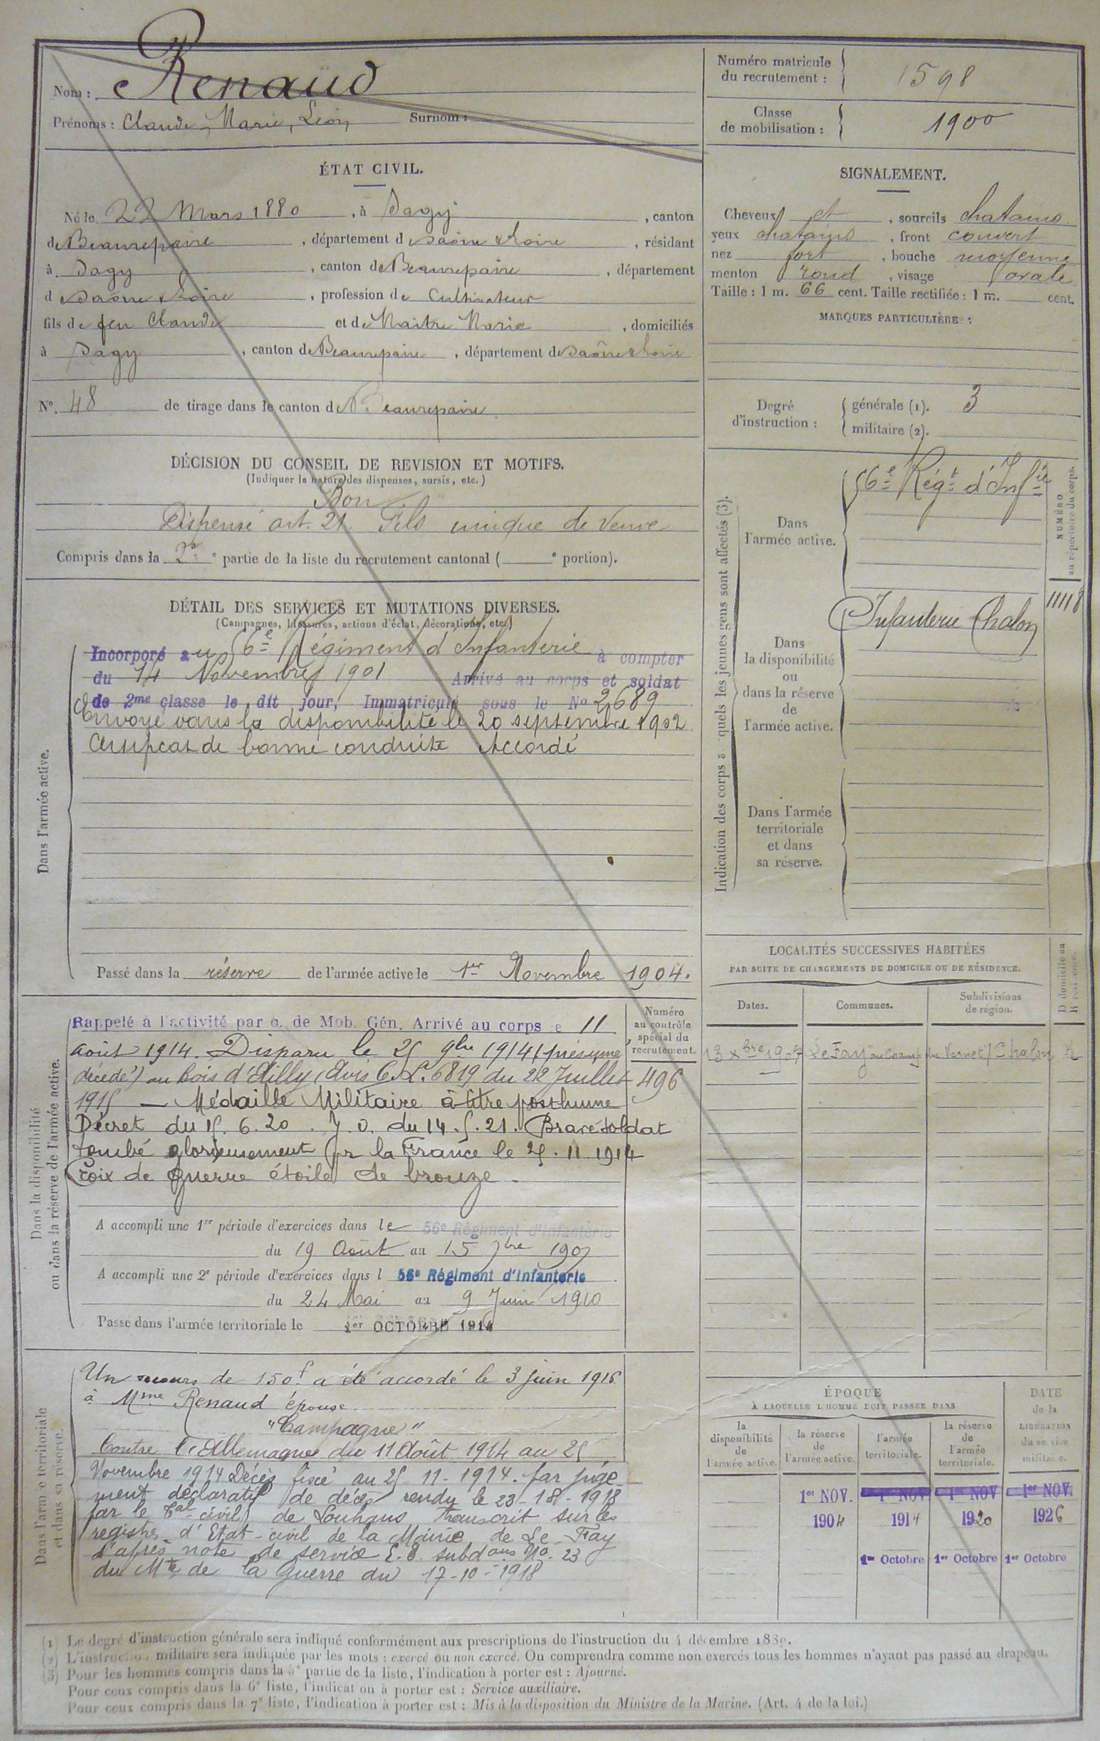 Nom : Renaud
Prénoms : Claude, Marie, Léon, Surnom :
Numéro matricule du recrutement : 1598
Classe de mobilisation : 1900
ÉTAT CIVIL.
Né le 22 Mars 1880, à Sagy, canton
de Beaurepaire, département d Saône & Loire, résidant
à Sagy, canton de Beaurepaire, département
d Saône & Loire, profession de Cultivateur
fils de feu Claude et de Maitre Marie, domiciliés
à Sagy, canton de Beaurepaire, département de Saône & Loire
N°. 48 de tirage dans le canton de Beaurepaire
SIGNALEMENT.
Cheveux et, sourcils chatains
yeux chatains, front couvert
nez fort, bouche moyenne
menton rond, visage ovale
Taille : 1 m. 66 cent. Taille rectifiée : 1 m. cent.
MARQUES PARTICULIÈRES :
Degré d'instruction : générale (1). 3
militaire (2).
DÉCISION DU CONSEIL DE REVISION ET MOTIFS.
(Indiquer la nature des dispenses, sursis, etc.)
Bon
Dispensé art. 21 Fils unique de Veuve
Compris dans la 2e partie de la liste du recrutement cantonal ( e portion).
DÉTAIL DES SERVICES ET MUTATIONS DIVERSES.
(Campagnes, blessures, actions d'éclat, décorations, etc.)
Dans l'armée active.
Incorporé au 56e Régiment d'Infanterie à compter
du 14 Novembre 1901 Arrivé au corps et soldat
de 2me classe le dit jour, Immatriculé sous le No 2689
Envoyé dans la disponibilité le 20 septembre 1902
Certificat de bonne conduite Accordé
Passé dans la réserve de l'armée active le 1er Novembre 1904.
Indication des corps auxquels les jeunes gens sont affectés (3).
Dans l'armée active. 56e Régt d'Infie
NUMÉRO au répertoire du corps.
11118
Dans la disponibilité ou dans la réserve de l'armée active. Infanterie Chalon
Dans l'armée territoriale et dans sa réserve.
Dans la disponibilité ou dans la réserve de l'armée active.
Rappelé à l'activité par o. de Mob. Gén. Arrivé au corps le 11
août 1914. Disparu le 25 9bre 1914 (présumé
décédé) au bois d'Ailly (Avis C. L. 6819 du 22 Juillet
1915 — Médaille Militaire à titre posthume
Décret du 15. 6. 20. J. O. du 14. 5. 21. Brave soldat
tombé glorieusement pr la France le 25. 11. 1914
Croix de guerre étoile de bronze.
Numéro au contrôle spécial du recrutement.
496
A accompli une 1re période d'exercices dans le 56e Régiment d'Infanterie
du 19 Août au 15 7bre 1907
A accompli une 2e période d'exercices dans l 56e Régiment d'Infanterie
du 24 Mai au 9 Juin 1910
Passé dans l'armée territoriale le 1er OCTOBRE 1914
LOCALITÉS SUCCESSIVES HABITÉES
PAR SUITE DE CHANGEMENTS DE DOMICILE OU DE RÉSIDENCE.
Dates. Communes. Subdivisions de région. D domicile ou R résidence.
Le Fay Chalon
Dans l'armée territoriale et dans sa réserve.
Un secours de 150f a été accordé le 3 juin 1916
à Mme Renaud épouse
"Campagne"
Contre l'Allemagne du 11 Août 1914 au 25
Novembre 1914 Décès fixé au 25-11-1914. par juge
ment déclaratif de décès rendu le
par le Tal civil de Louhans transcrit sur les
registres d'Etat-civil de la Mairie de Le Fay
d'après note de service
du Mtre de la Guerre du 17-10-1918
ÉPOQUE
A LAQUELLE L'HOMME DOIT PASSER DANS
la disponibilité de l'armée active. la réserve de l'armée active. l'armée territoriale. la réserve de l'armée territoriale.
DATE de la LIBÉRATION du service militaire.
1er NOV. 1er NOV 1er NOV 1er NOV.
1904 1914 1920 1926
1er Octobre 1er Octobre 1er Octobre
(1) Le degré d'instruction générale sera indiqué conformément aux prescriptions de l'instruction du 4 décembre 1889.
(2) L'instruction militaire sera indiquée par les mots : exercé ou non exercé. On comprendra comme non exercés tous les hommes n'ayant pas passé au drapeau.
(3) Pour les hommes compris dans la 5e partie de la liste, l'indication à porter est : Ajourné.
Pour ceux compris dans la 6e liste, l'indication à porter est : Service auxiliaire.
Pour ceux compris dans la 7e liste, l'indication à porter est : Mis à la disposition du Ministre de la Marine. (Art. 4 de la loi.)